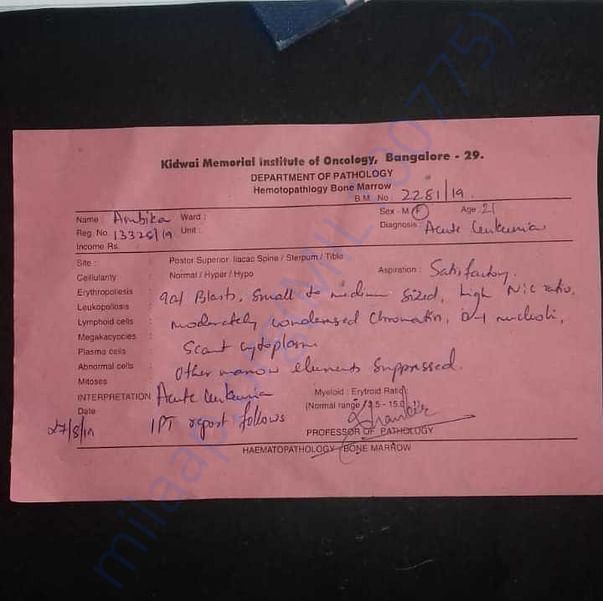 Kidwai Memorial Institute of Oncology, Bangalore - 29.
DEPARTMENT OF PATHOLOGY
Hemotopathlogy Bone Marrow
B.M. No. 2281/19
Name : Ambika Ward : Sex - M F Age 21
Reg. No. 13328/19 Unit : Diagnosis : Acute leukemia
Income Rs.
Site : Postar Superior Iliacac Spine / Sterpum / Tibia
Cellularity : Normal / Hyper / Hypo Aspiration : Satisfactory.
Erythropoliesis : 90% Blasts, Small to medium sized, high N:C ratio,
Leukopoliosis :
Lymphoid cells : moderately condensed chromatin, 0-1 nucleoli,
Megakacycies :
Plasma cells : Scant cytoplasm
Abnormal cells : Other marrow elements suppressed.
Mitoses
INTERPRETATION : Acute leukemia Myeloid : Erytroid Ratio
Date (Normal range / 2.5 - 15.0
27/8/19 IPT report follows
PROFESSOR OF PATHOLOGY
HAEMATOPATHOLOGY BONE MARROW